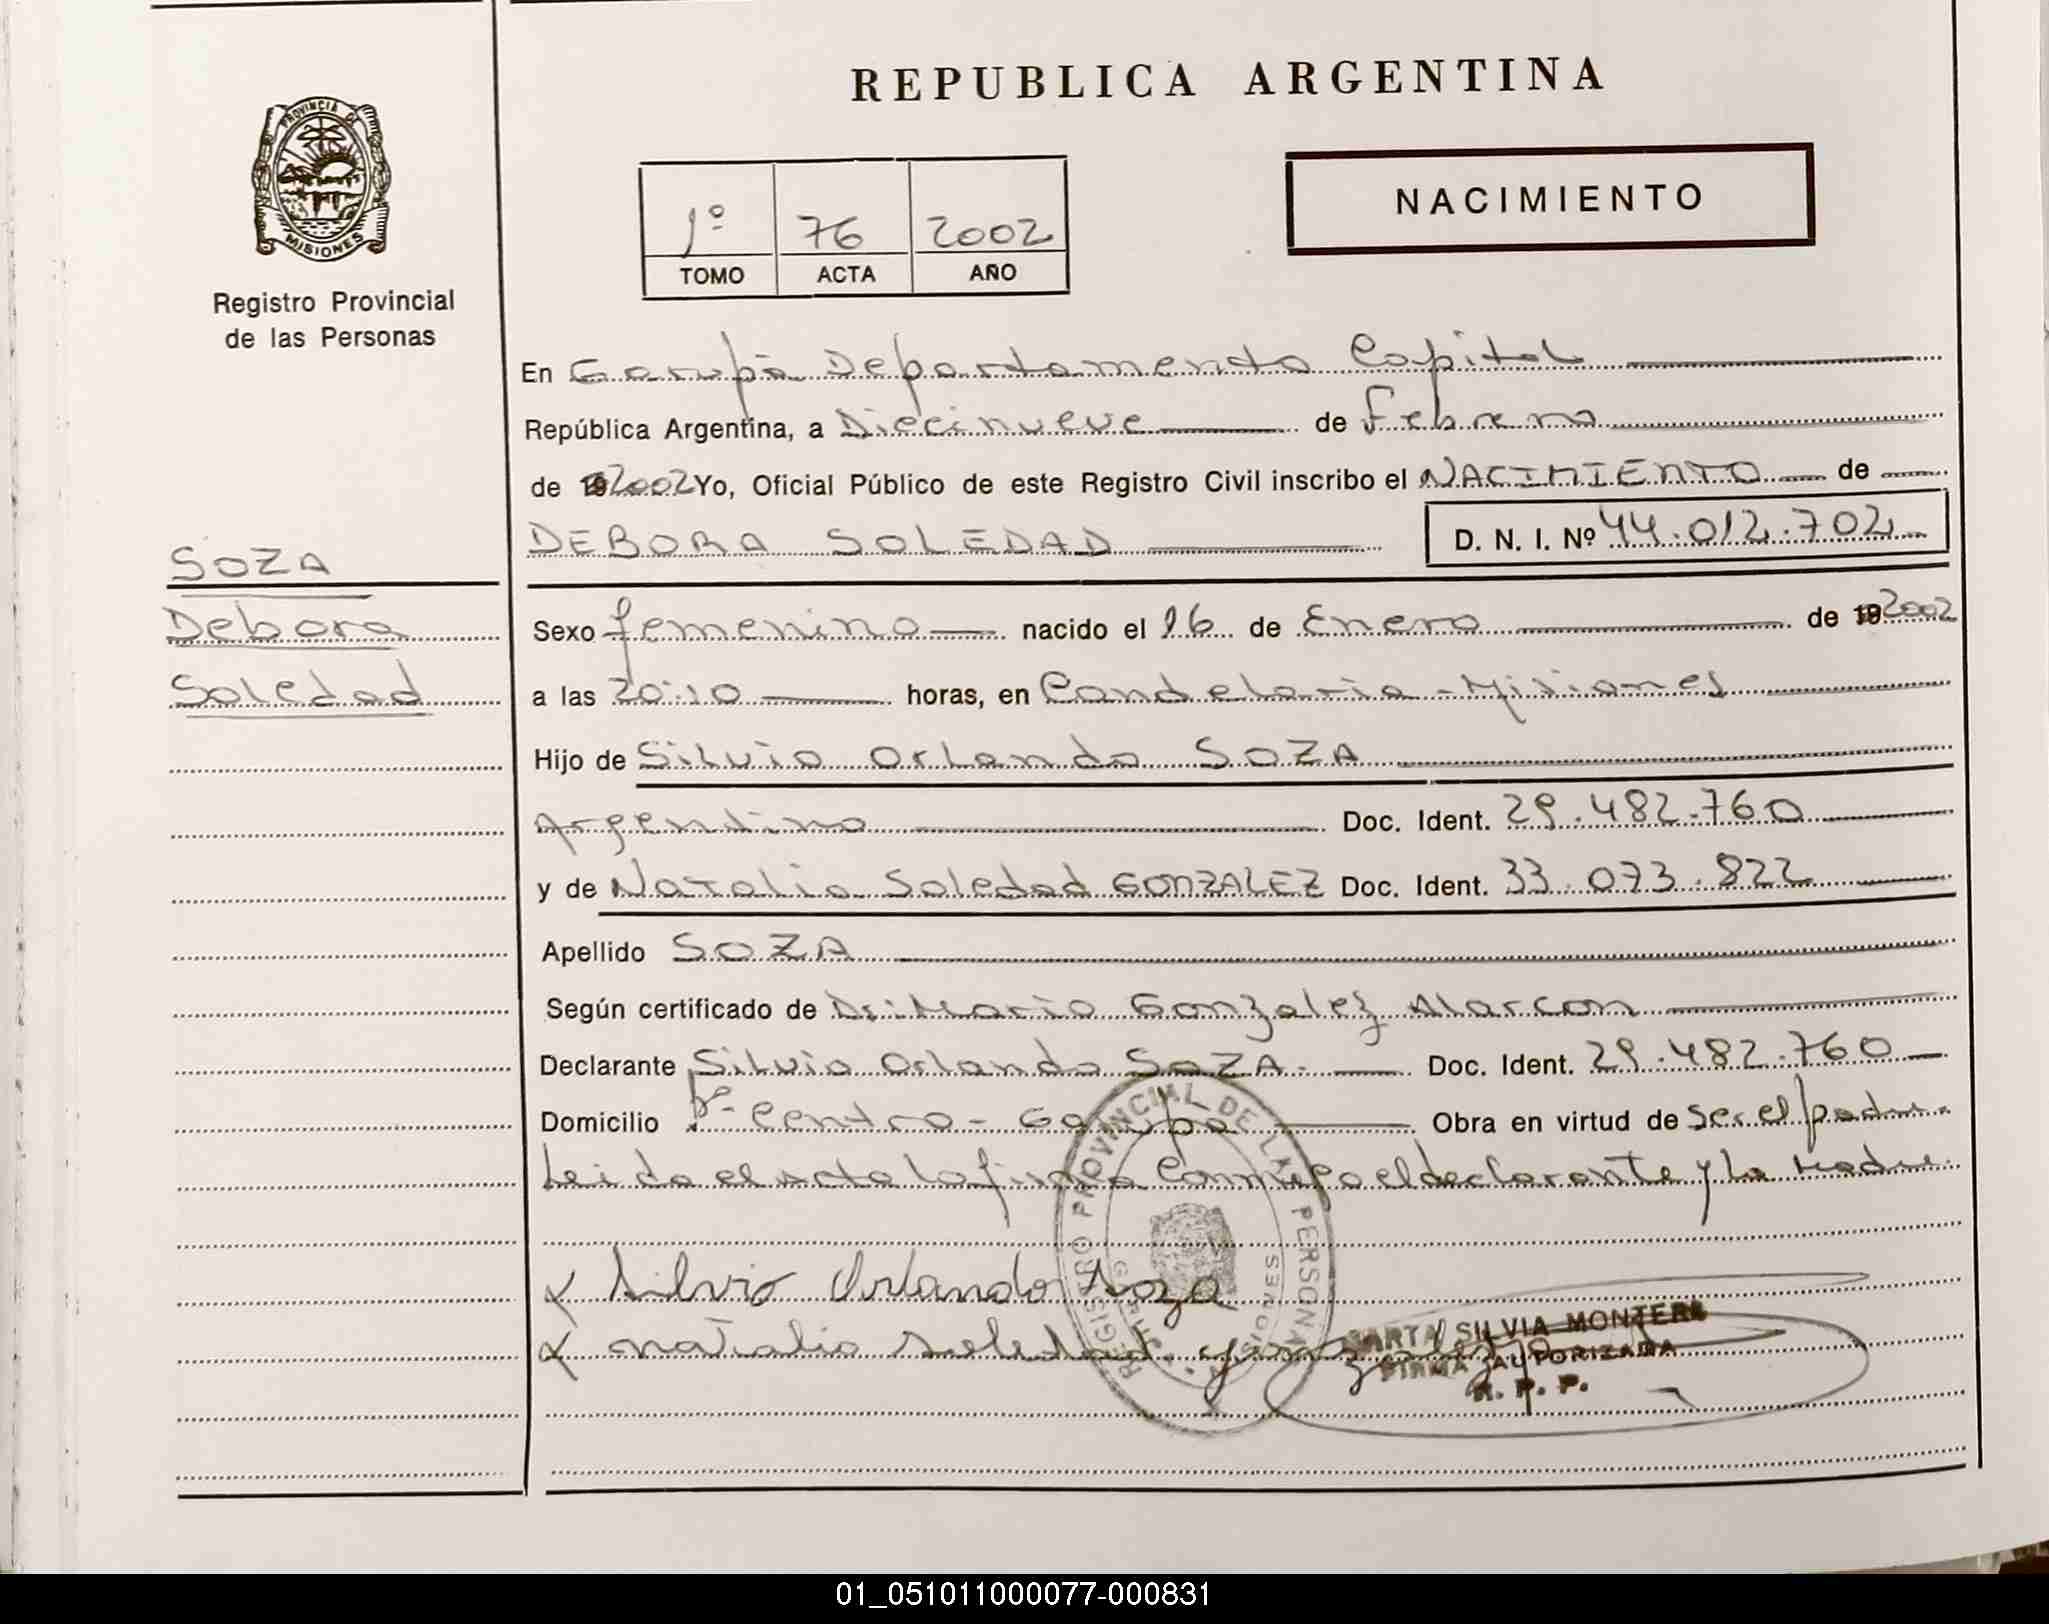 REPUBLICA ARGENTINA
PROVINCIA DE
MISIONES
Registro Provincial
de las Personas
1º 76 2002
TOMO ACTA AÑO
NACIMIENTO
En Garupá Departamento Capital
República Argentina, a Diecinueve de Febrero
de 19 2002 Yo, Oficial Público de este Registro Civil inscribo el NACIMIENTO de
DEBORA SOLEDAD D. N. I. Nº 44.012.702
SOZA
Debora
Soledad
Sexo femenino nacido el 16 de Enero de 19 2002
a las 20:10 horas, en Candelaria - Misiones
Hijo de Silvio Orlando SOZA
Argentino Doc. Ident. 29.482.760
y de Natalia Soledad GONZALEZ Doc. Ident. 33.073.822
Apellido SOZA
Según certificado de Dr: Mario Gonzalez Alarcon
Declarante Silvio Orlando SOZA. Doc. Ident. 29.482.760
Domicilio Centro - Garupa Obra en virtud de ser el padre.
Leida el acta la firma conmigo el declarante y la Madre.
REGISTRO PROVINCIAL DE LAS PERSONAS
MISIONES
Silvio Orlando Soza
Natalia Soledad Gonzalez
MARTA SILVIA MONTERO
FIRMA AUTORIZADA
R. P. P.
01_051011000077-000831